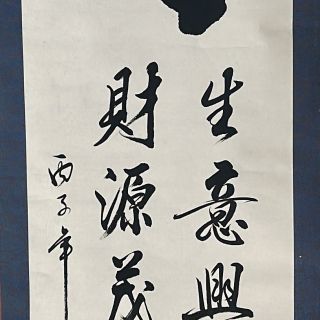 生意興
財源茂
丙子年